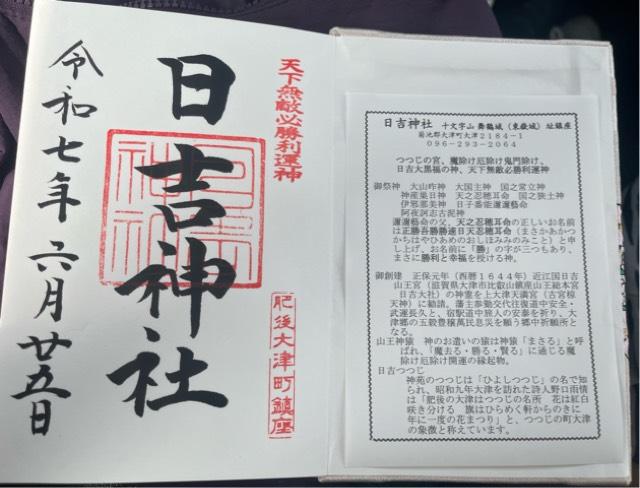 天下無敵必勝利運神
日吉神社
肥後大津町鎮座
令和七年六月廿五日
日吉神社 十文字山 舞鶴城(東嶽城)址鎮座
菊池郡大津町大津2184-1
096-293-2064
つつじの宮、魔除け厄除け鬼門除け、
日吉大黒福の神、天下無敵必勝利運神
御祭神 大山咋神 大国主神 国之常立神
神産巣日神 天之忍穂耳命 国之狭土神
伊邪那美神 日子番能邇邇藝命
阿夜訶志古泥神
邇邇藝命の父、天之忍穂耳命の正しいお名前
は正勝吾勝勝速日天忍穂耳命(まさかあかつ
かちはやひあめのおしほみみのみこと)と申
し上げ、お名前に「勝」の字が三つもあり、
まさに勝利と幸福を授ける神。
御創建 正保元年(西暦1644年)近江国日吉
山王宮(滋賀県大津市比叡山鎮座山王総本宮
日吉大社)の神霊を上大津天満宮(古宮椋
天神)に勧請。藩主参勤交代往復道中安全・
武運長久と、宿駅道中旅人の安泰を祈り、大
津郷の五穀豊穣萬民息災を願う郷中祈願所と
なる。
山王神猿 神のお遣いの猿は神猿「まさる」と呼
ばれ、「魔去る・勝る・賢る」に通じる魔
除け厄除け開運の縁起物。
日吉つつじ
神苑のつつじは「ひよしつつじ」の名で知
られ、昭和九年大津を訪れた詩人野口雨情
は「肥後の大津はつつじの名所 花は紅白
咲き分ける 旗はひらめく軒からのきに
年に一度の花まつり」と、つつじの町大津
の象徴と称えています。